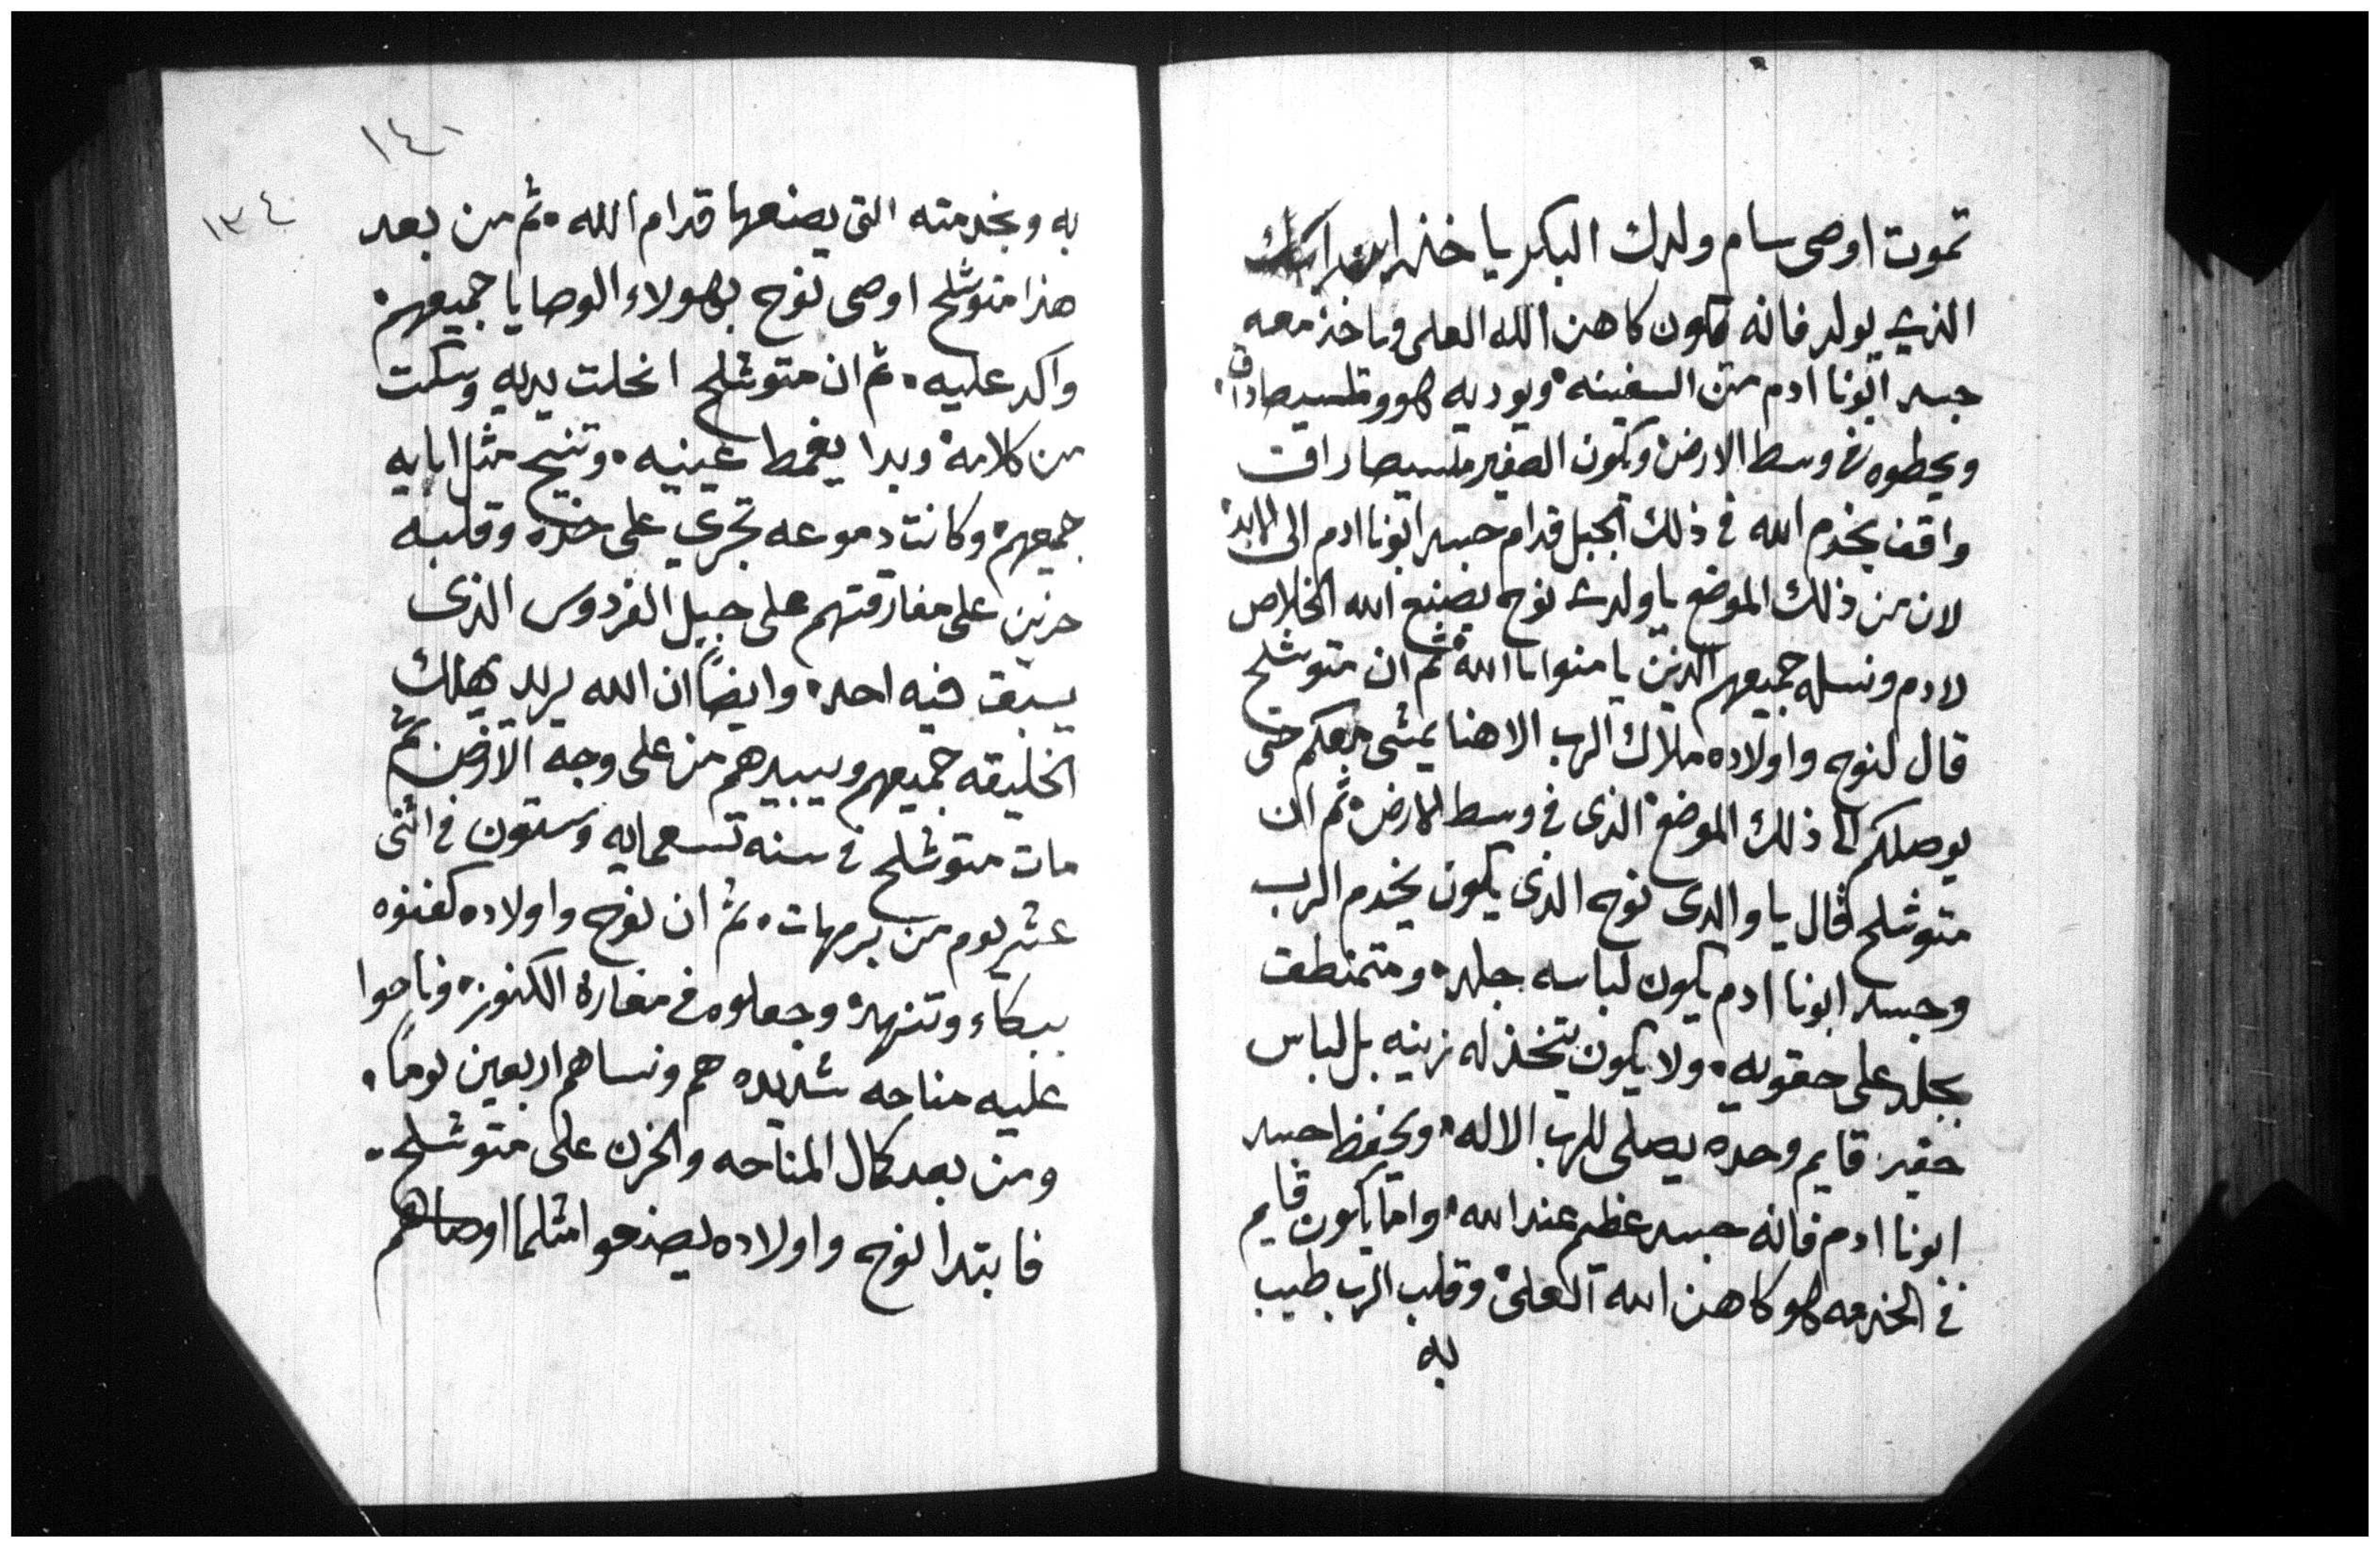 تموت اوصى سام ولدك البكر ياخذ ابن ابنك
الذي يولد فانه يكون كاهن الله العلي وياخذ معه
جسد ابونا ادم من السفينه ويوديه هو وملشيصاداق
ويحطوه في وسط الارض ويكون الصغير ملشيصاداق
واقف يخدم الله في ذلك الجبل قدام جسد ابونا ادم الى الابد
لان من ذلك الموضع يا ولدي نوح يصنع الله الخلاص
لادم ونسله جميعهم الذين يامنوا بالله ثم ان متوشلح
قال لنوح واولاده ملاك الرب الاهنا يمشي معكم حتى
يوصلكم الى ذلك الموضع الذى في وسط الارض ثم ان
متوشلح قال يا والدى نوح الذى يكون يخدم الرب
وجسد ابونا ادم يكون لباسه جلد ومتمنطق
بجلد على حقويه ولا يكون يتخذ له زينه بل لباس
حقير قايم وحده يصلى للرب الاله ويحفظ جسد
ابونا ادم فانه جسد عظيم عند الله وامايكون قايم
في الخدمه هو كاهن الله العلى وقلب الرب طيب
به
١٤١
١٣٤
به وبخدمته التى يصنعها قدام الله ثم من بعد
هذا متوشلح اوصى نوح بهولاء الوصايا جميعهم
واكد عليه ثم ان متوشلح انحلت يديه وسكت
من كلامه وبدا يغمط عينيه وتنيح مثل ابايه
جميعهم وكانت دموعه تجري على خده وقلبه
حزين على مفارقتهم على جبل الفردوس الذى
يبق فيه احد وايضاً ان الله يريد يهلك
الخليقه جميعهم ويبيدهم من على وجه الارض ثم
مات متوشلح في سنه تسعمايه وستون في اثنى
عشر يوم من برمهات ثم ان نوح واولاده كفنوه
ببكاء وتنهد وجعلوه في مغارة الكنوز وناحوا
عليه مناحه شديده هم ونساهم اربعين يوماً
ومن بعد كمال المناحه والحزن على متوشلح
فابتدا نوح واولاده ليصنعوا مثلما اوصاهم